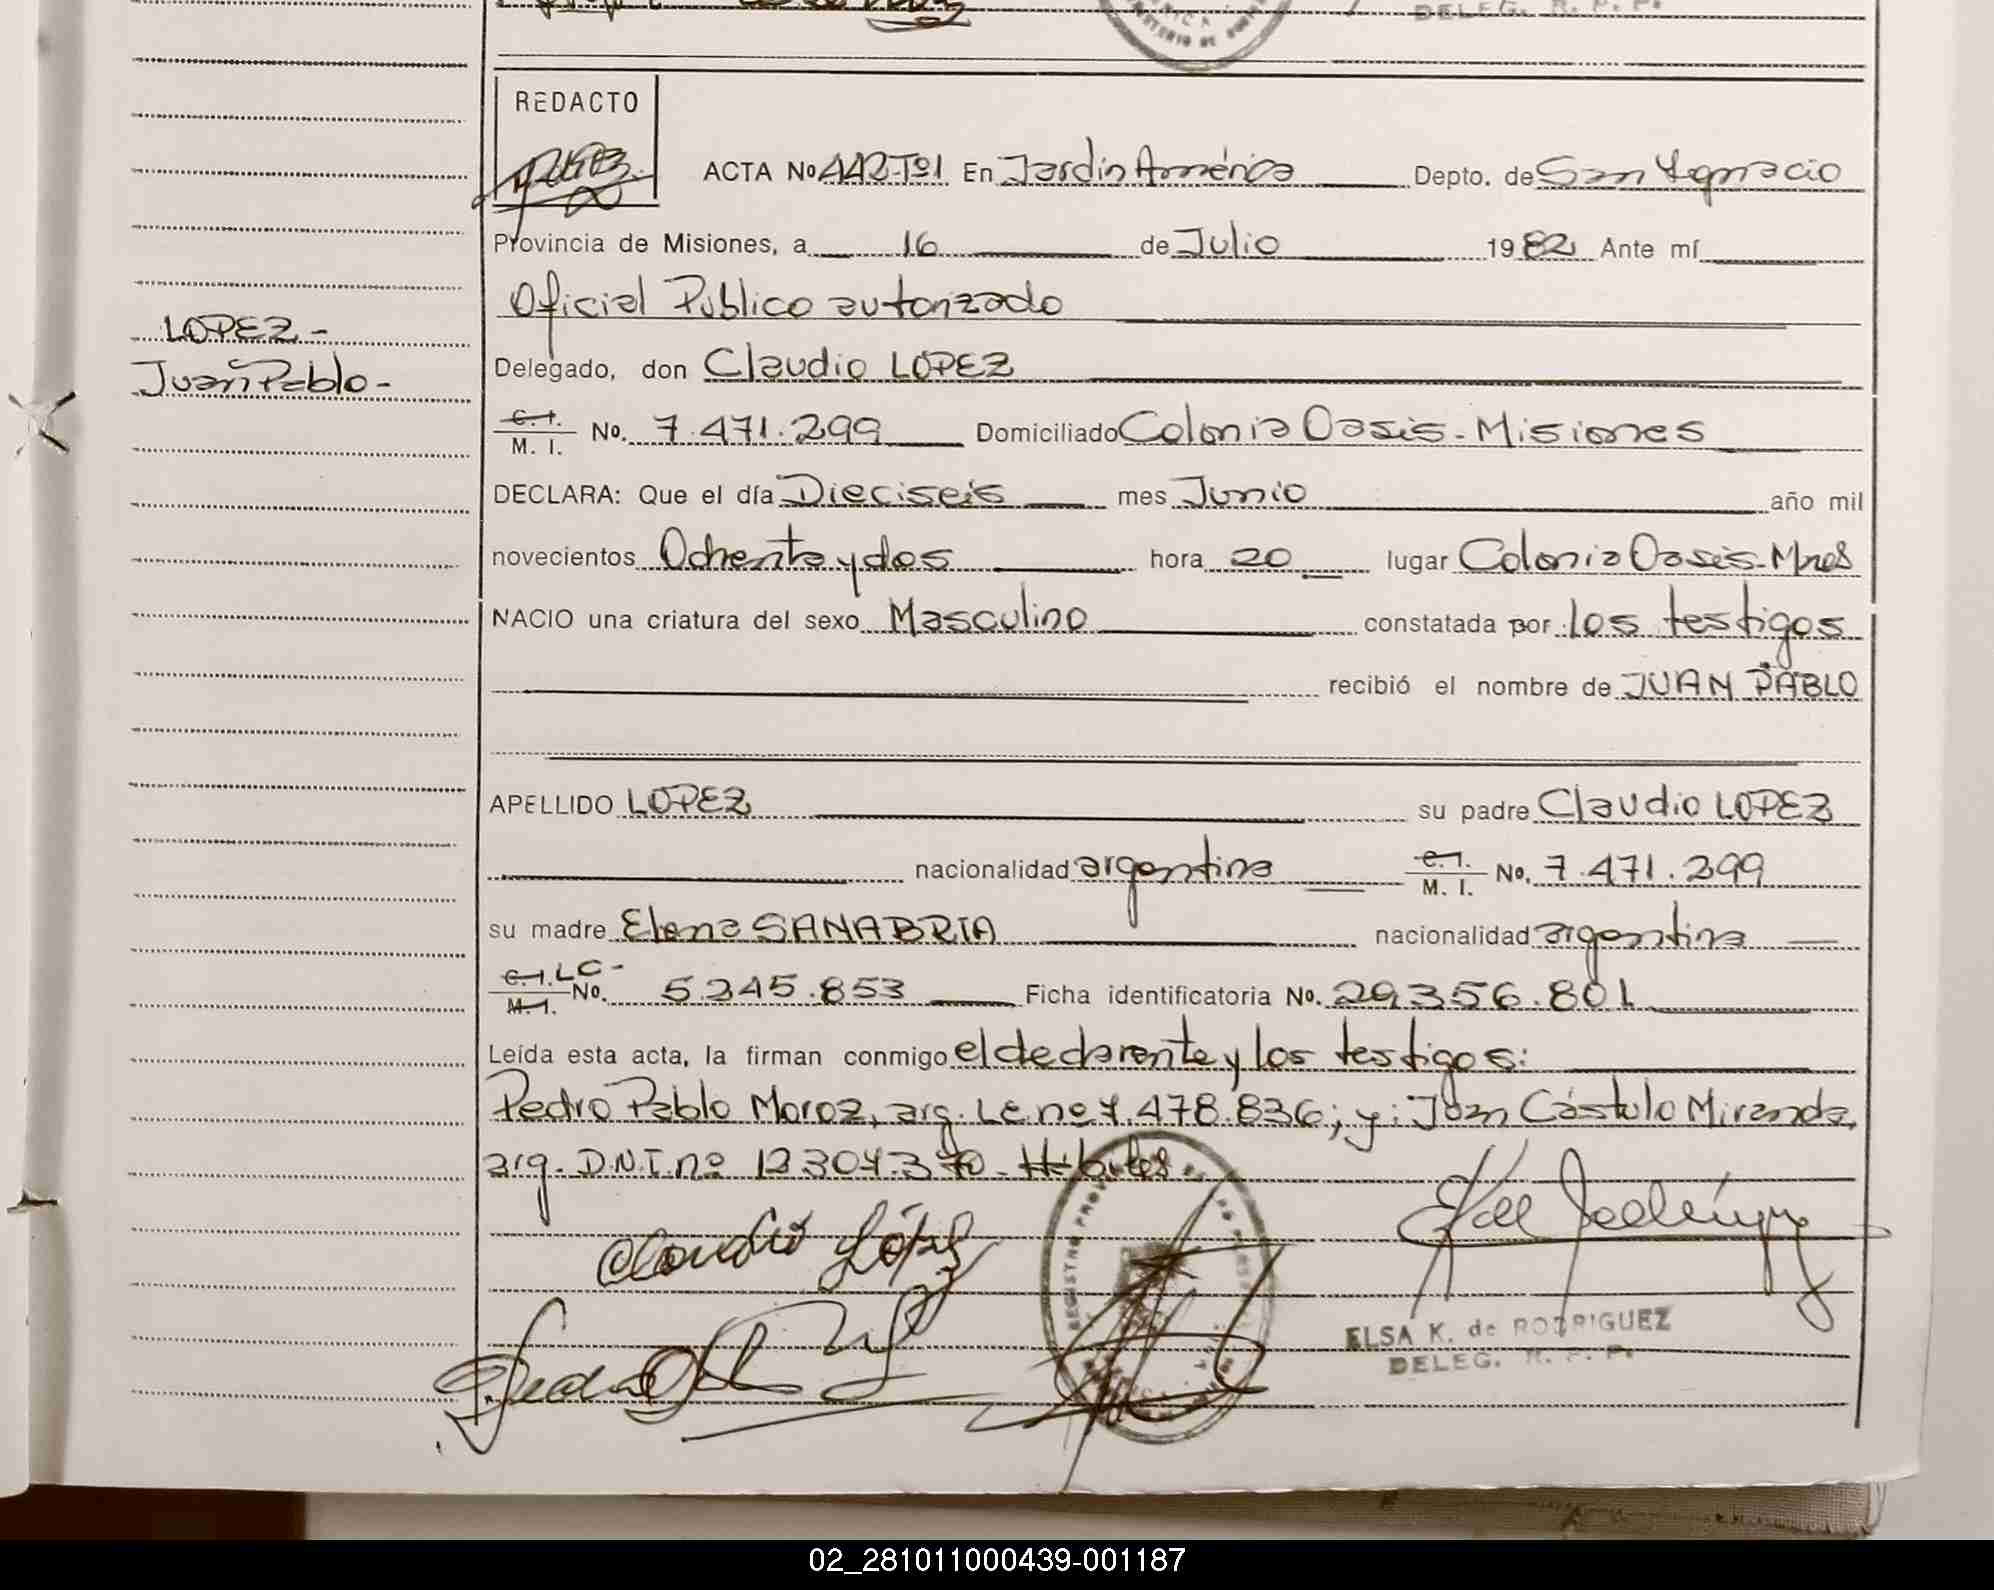 DELEG. R. P. P.
REDACTO
ACTA No 442-Tº1 En Jardín América Depto. de San Ygnacio
Provincia de Misiones, a 16 de Julio 1982 Ante mí
Oficial Público autorizado
LOPEZ-
Juan Pablo-
Delegado, don Claudio LOPEZ
C. I. M. I. No. 7.471.299 Domiciliado Colonia Oasis - Misiones
DECLARA: Que el día Dieciseis mes Junio año mil
novecientos Ochenta y dos hora 20 lugar Colonia Oasis - Mnes
NACIO una criatura del sexo Masculino constatada por los testigos
recibió el nombre de JUAN PABLO
APELLIDO LOPEZ su padre Claudio LOPEZ
nacionalidad argentina C. I. M. I. No. 7.471.299
su madre Elena SANABRIA nacionalidad argentina
C. I. LC- M. I. No. 5.245.853 Ficha identificatoria No. 29.356.801
Leída esta acta, la firman conmigo el declarante y los testigos:
Pedro Pablo Moroz, arg. L.E. nº 7.478.836; y: Juan Cástulo Miranda,
arg. D.N.I. nº 12.304.370 - Hábiles
Claudio López
REGISTRO PROV
ELSA K. de RODRIGUEZ
DELEG. R. P. P.
02_281011000439-001187